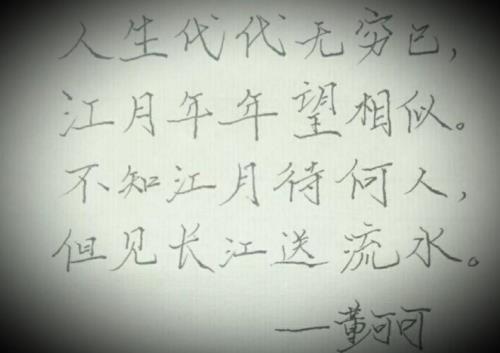 人生代代无穷已，
江月年年望相似。
不知江月待何人，
但见长江送流水。
—董可可